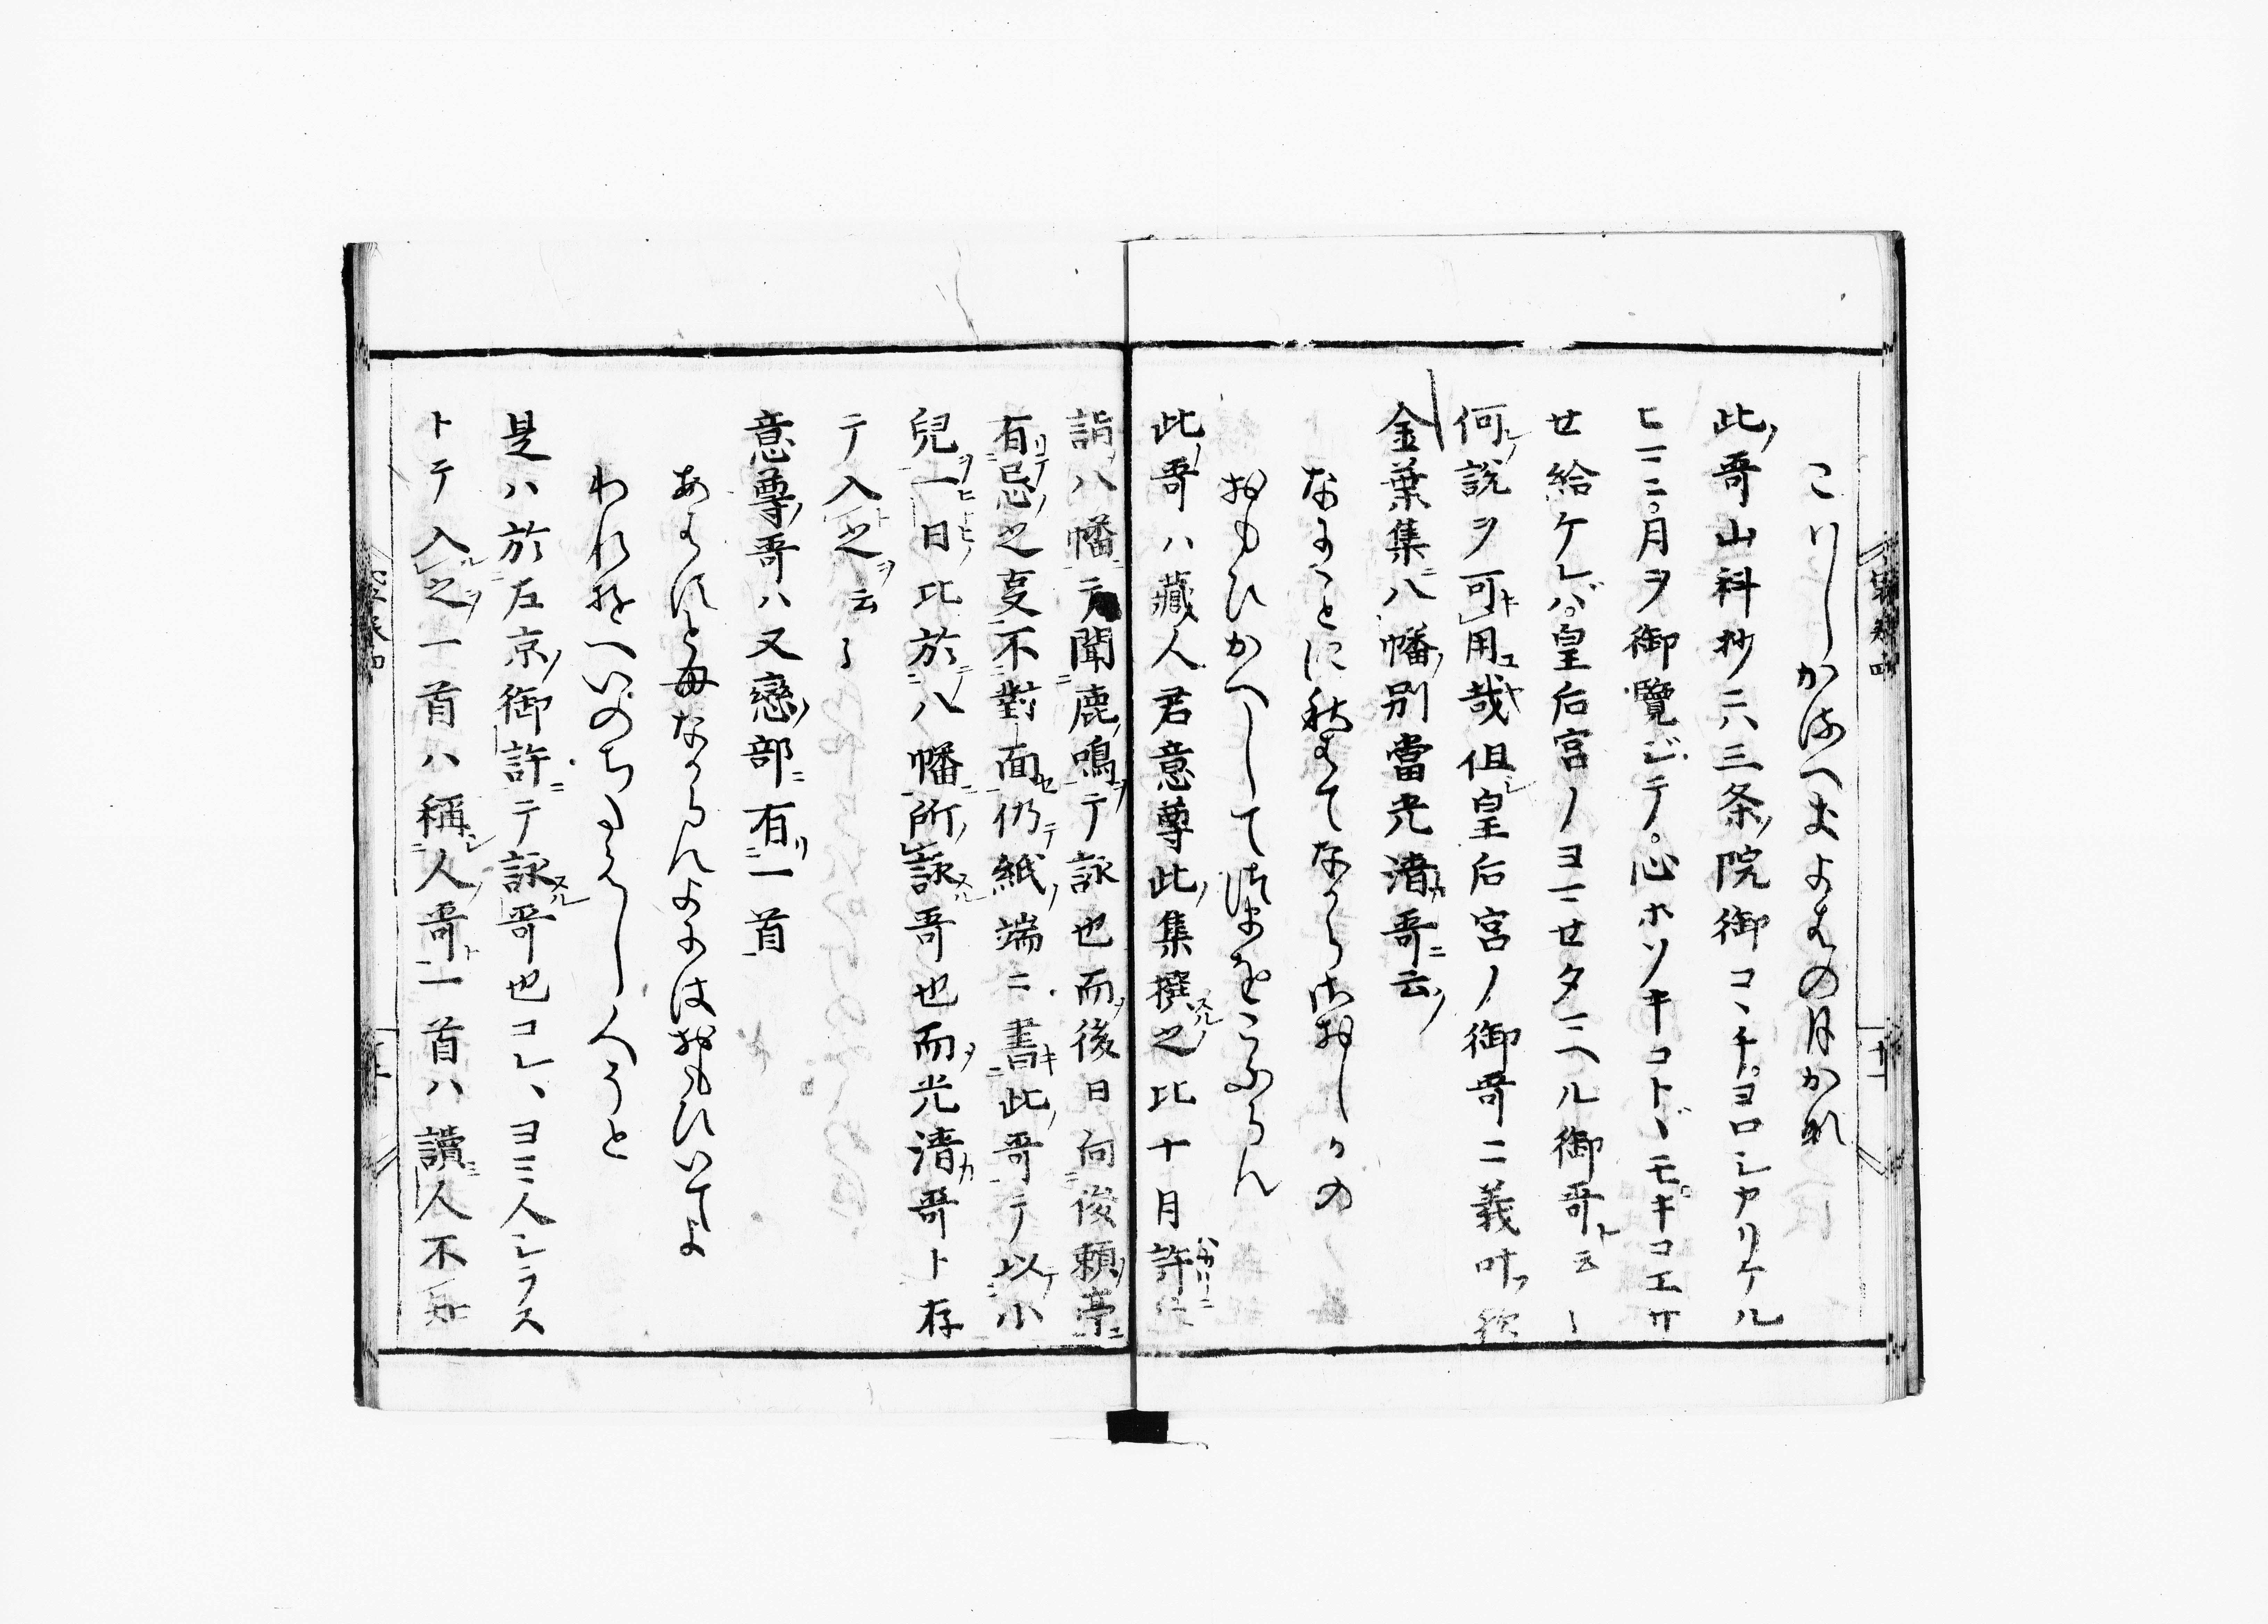 こひしかるへきよはの月かな
此哥山科抄ニハ三条院御コヽチヨロシカリケル
ヒマニ月ヲ御覽ジテ心ホソキコトドモキコエサ
せ給ケレバ皇后宮ノヨマせタマヘル御哥ト云々
何説ヲ可用哉但皇后宮ノ御哥ニ義叶欤
金葉集八幡別當光清哥云
なすことに秋はてなからさおしかの
おもひかへしてつまをこふらん
此哥ハ藏人君意尊此集撰之比十月許
詣八幡テ聞鹿鳴テ詠也而後日向俊頼亭
有忌之㕝不對面仍紙端ニ書此哥テ以小
兒一日比於八幡所詠哥也而光清哥ト存
テ入之云々
意尊哥ハ又戀部有一首
あふことはなからんよにはおもひいてよ
われゆへいのちたえし人そと
是ハ於左京御許テ詠哥也コレヽヨミ人シラス
トテ入之一首ハ稱人哥一首ハ讀人不知